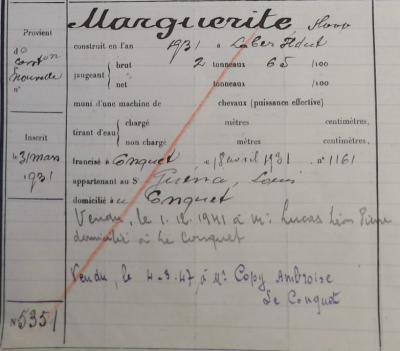 Marguerite Sloop
Provient
de
construction
Nouvelle
n°
construit en l'an 1931 à Laber Ildut
jaugeant
brut 2 tonneaux 65 /100
net tonneaux /100
muni d'une machine de chevaux (puissance effective)
tirant d'eau
chargé mètres centimètres,
non chargé mètres centimètres,
Inscrit
le 31 mars
1931
francisé à Conquet le 18 avril 1931 n° 1161
appartenant au Sr Guéna, Louis
domicilié à Conquet
Vendu, le 1.12.1941 à Mr Lucas Léon Pierre
domicilié à Le Conquet
Vendu, le 4-3-47, à Mr Copy Ambroise
Le Conquet
N° 5351